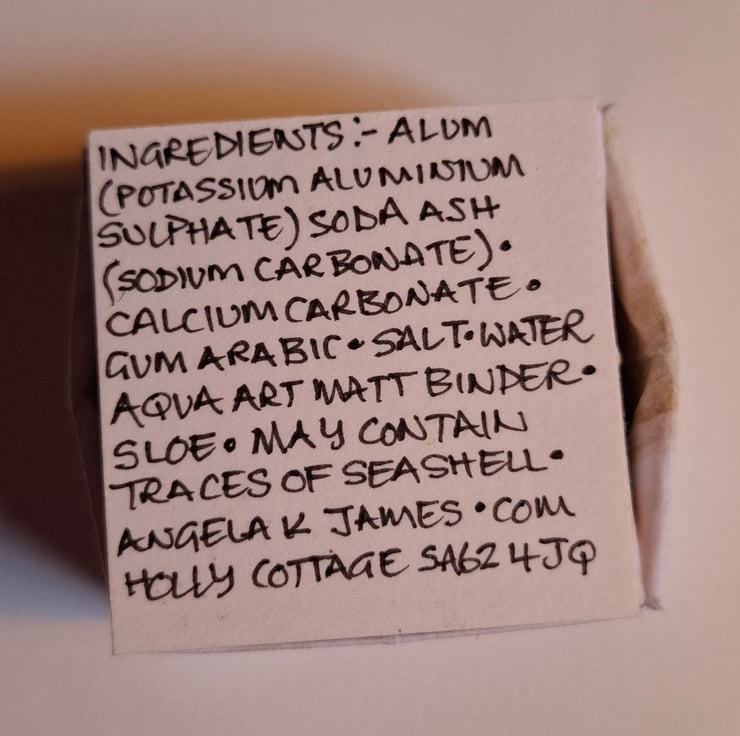 INGREDIENTS:- ALUM
(POTASSIUM ALUMINIUM
SULPHATE) SODA ASH
(SODIUM CARBONATE)•
CALCIUM CARBONATE•
GUM ARABIC• SALT•WATER
AQUA ART MATT BINDER•
SLOE• MAY CONTAIN
TRACES OF SEASHELL•
ANGELA K JAMES •COM
HOLLY COTTAGE SA62 4JQ